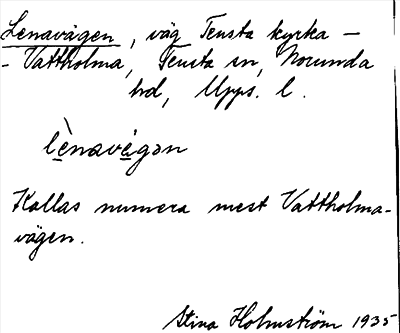 Lenavägen, väg Tensta kyrka –
- Vattholma, Tensta sn, Norunda
hd, Upps. l.
lènavägən
Kallas numera mest Vattholma-
vägen.
Stina Holmström 1935